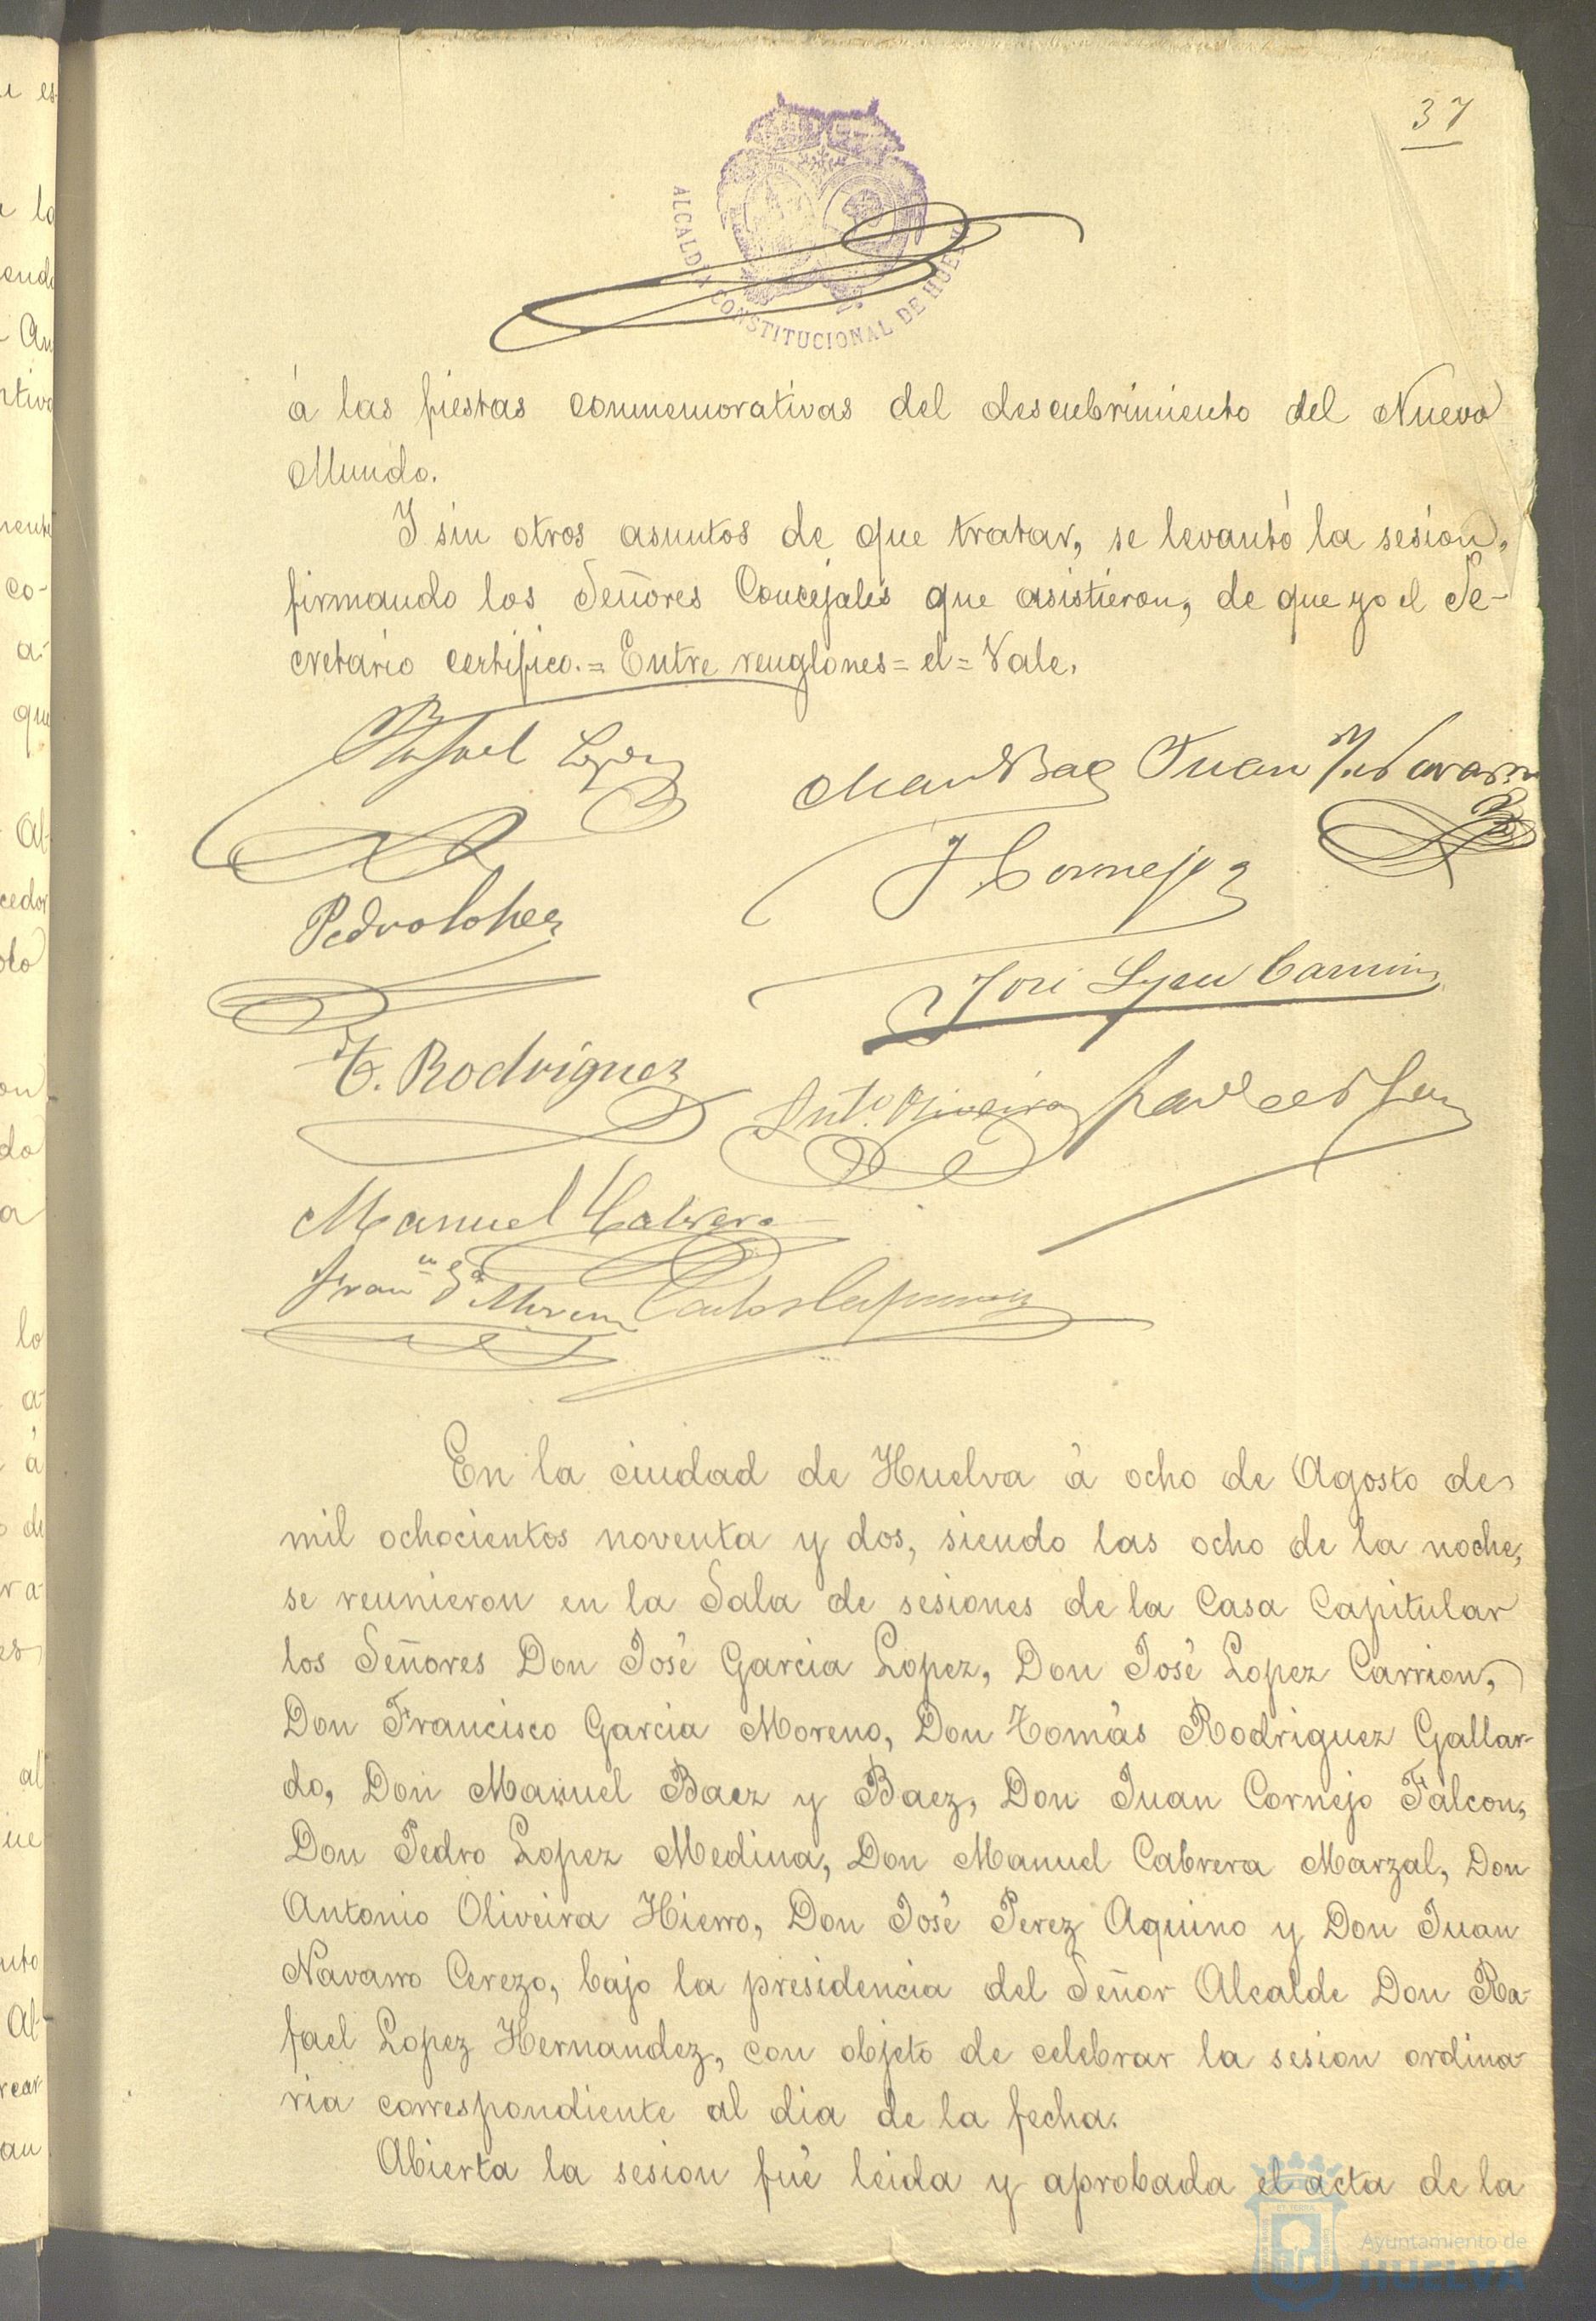 37
ALCALDÍA CONSTITUCIONAL DE HUELVA
á las fiestas conmemorativas del descubrimiento del Nuevo
Mundo.
Y sin otros asuntos de que tratar, se levantó la sesion,
firmando los Señores Concejales que asistieron, de que yo el Se-
cretario certifico.= Entre renglones= el= Vale.
Rafael Lopez
Man Baez Juan Navarro
J Cornejo
Pedro Lopez
José Lopez Carrion
T. Rodriguez
Ant.º Oliveira
Manuel Cabrera
Fran.co Ga Moreno
En la ciudad de Huelva á ocho de Agosto de
mil ochocientos noventa y dos, siendo las ocho de la noche,
se reunieron en la Sala de sesiones de la Casa Capitular
los Señores Don José Garcia Lopez, Don José Lopez Carrion,
Don Francisco Garcia Moreno, Don Tomás Rodriguez Gallar-
do, Don Manuel Baez y Baez, Don Juan Cornejo Falcon,
Don Pedro Lopez Medina, Don Manuel Cabrera Marzal, Don
Antonio Oliveira Hierro, Don José Perez Aquino y Don Juan
Navarro Cerezo, bajo la presidencia del Señor Alcalde Don Ra-
fael Lopez Hernandez, con objeto de celebrar la sesion ordina-
ria correspondiente al dia de la fecha.
Abierta la sesion fué leida y aprobada el acta de la
Ayuntamiento de
HUELVA